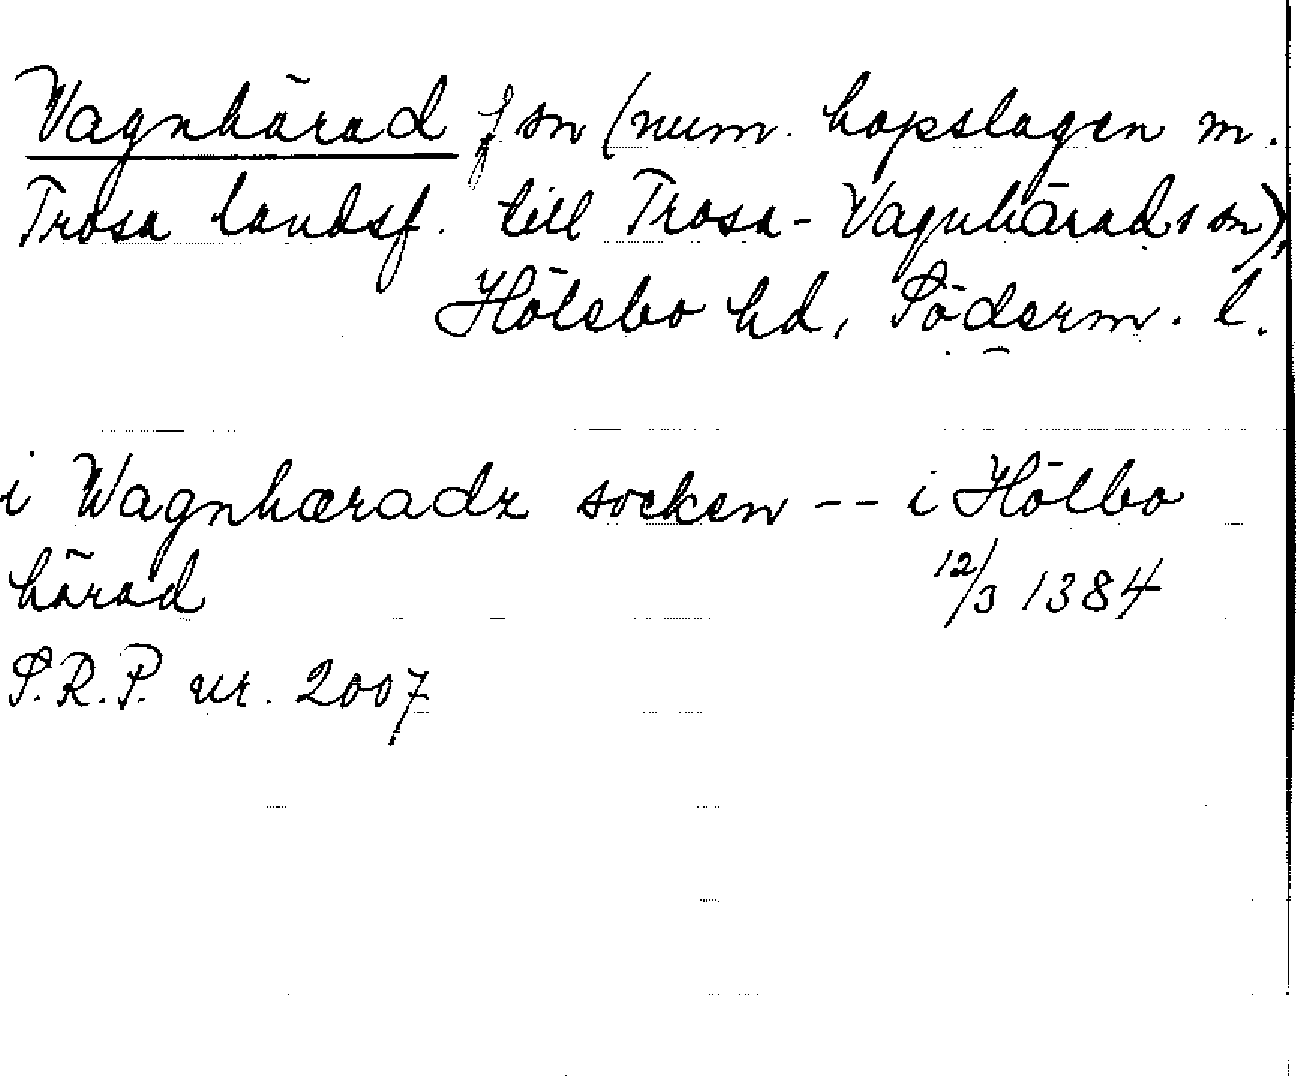 Vagnhärad f sn (num. hopslagen m.
Trosa landsf. till Trosa-Vagnhärads sn),
Hölebo hd, Söderm. l.
i Wagnhæradz socken -- i Hölbo
härad 12/3 1384
S.R.P. nr. 2007